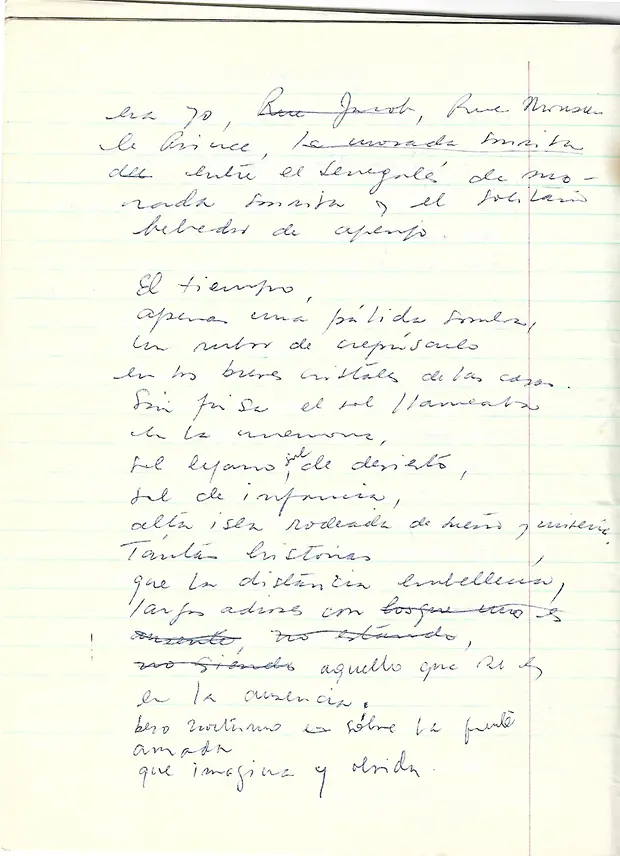 era yo, Rue Jacob, Rue Monsieur
le Prince, la morada sonrisa
de entre el senegalés de mo-
rada sonrisa y el solitario
bebedor de ajenjo.
El tiempo,
apenas una pálida sombra,
un rubor de crepúsculo
en los breves cristales de las casas.
Sin prisa el sol llameaba
en la memoria,
sol lejano, sol de desierto,
sol de infancia,
alta isla rodeada de sueño y miseria.
Tantas historias
que la distancia embellecía,
largos adioses con los que uno es
ausente, no estando,
no siendo aquello que se es
en la ausencia,
beso nocturno sobre la frente
amada
que imagina y olvida.